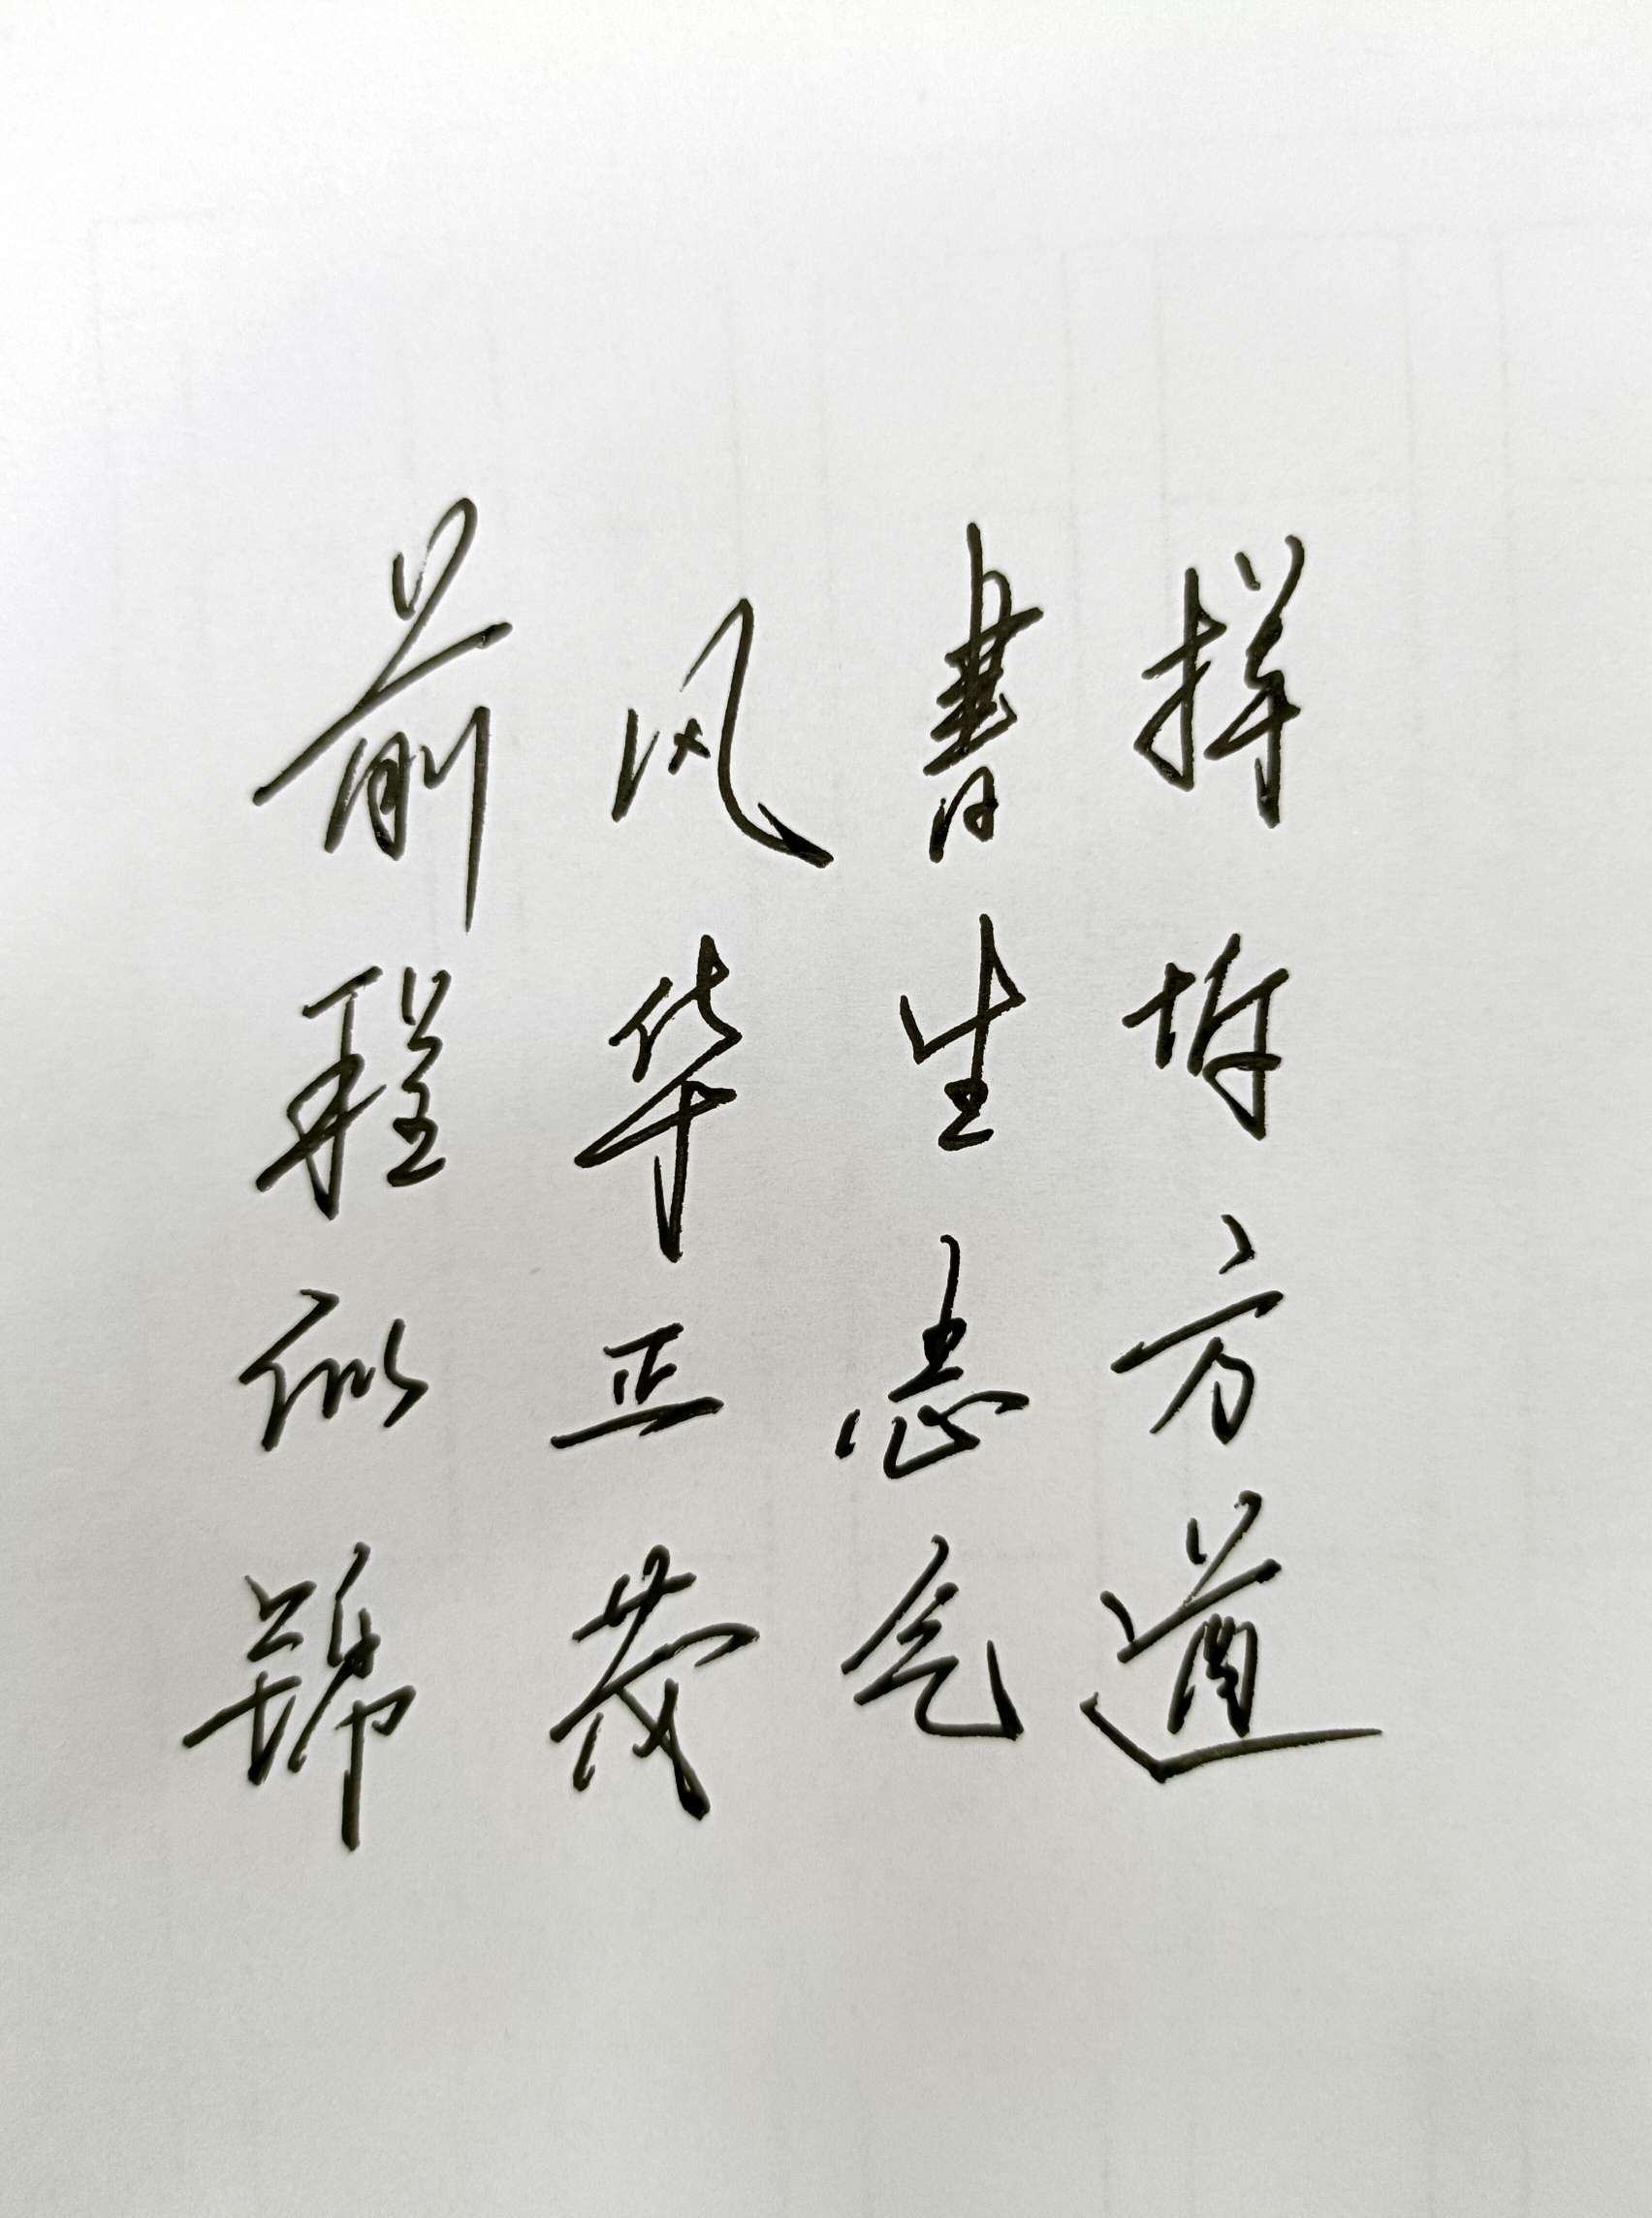 挥斥方遒
書生意气
风华正茂
前程似錦